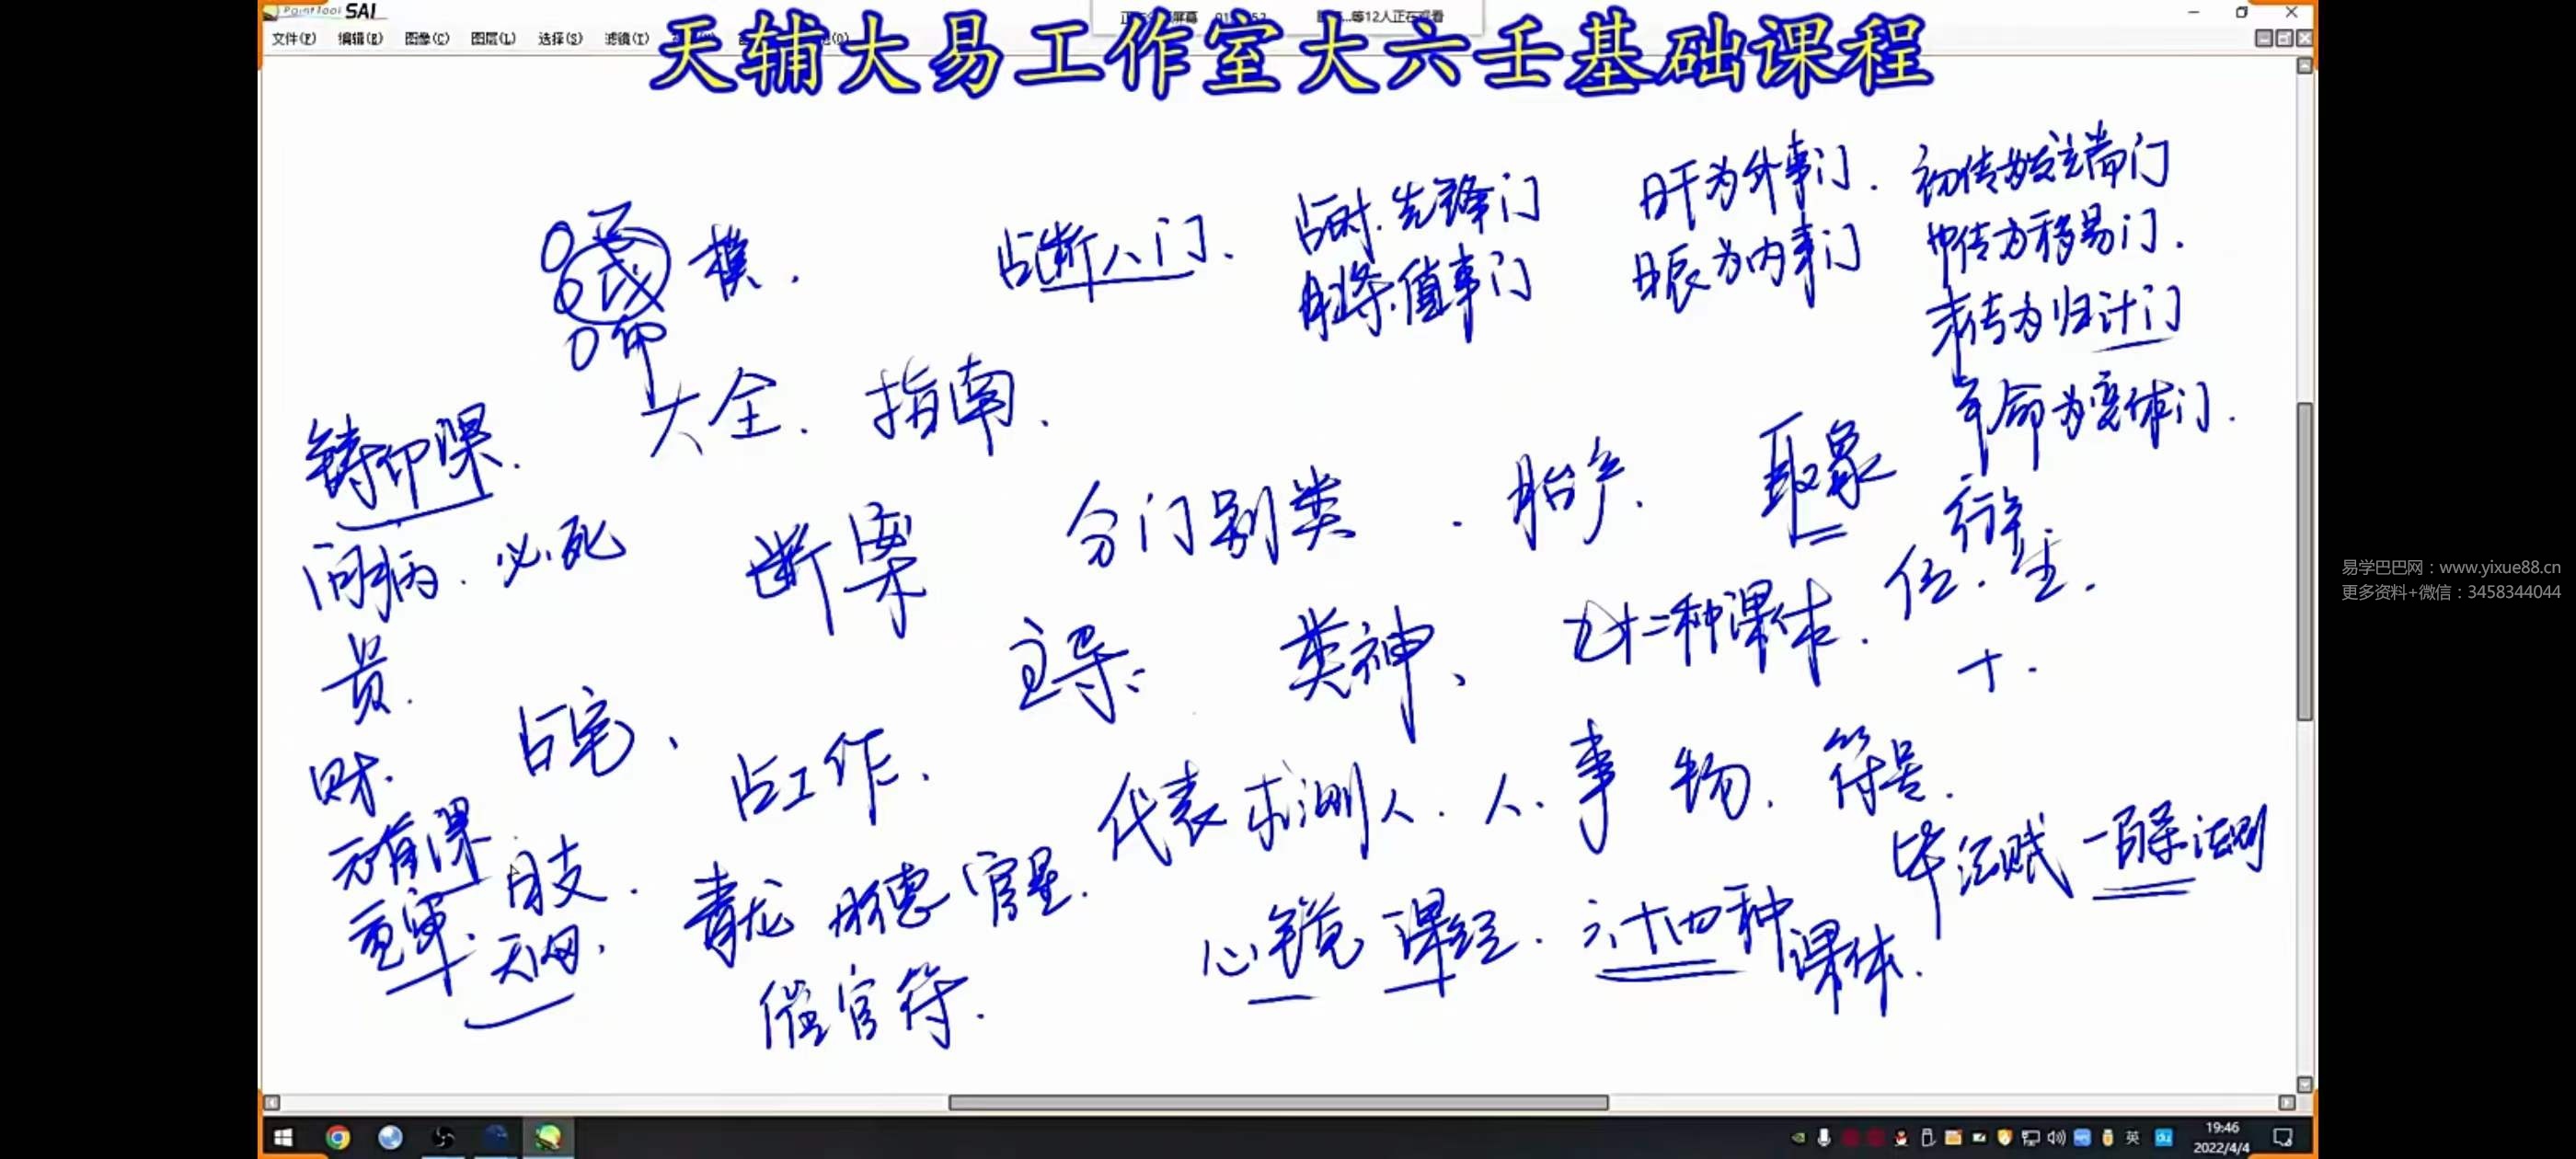 PaintTool SAI
文件(F) 编辑(E) 图像(C) 图层(L) 选择(S) 滤镜(T)
天辅大易工作室大六壬基础课程
等12人正在观看
巳
戌 模.
卯
占断八门.
占时.先锋门
月将.值事门
日干为外事门.
日辰为内事门
初传为发端门
中传为移易门.
末传为归计门
年命为变体门.
大全. 指南.
铸印课.
问病. 必死
贵.
财.
断案
分门别类 . 胎产.
取象
行年.
主导:
类神、
七十二种课体.
占宅、
占工作.
代表求测人. 人. 事 物. 符号.
元首课
重审.
天网.
青龙 月德 官星.
催官符.
心镜 课经. 六十四种课体.
毕法赋 一百条法则
易学巴巴网：www.yixue88.cn
更多资料+微信：3458344044
英
19:46
2022/4/4